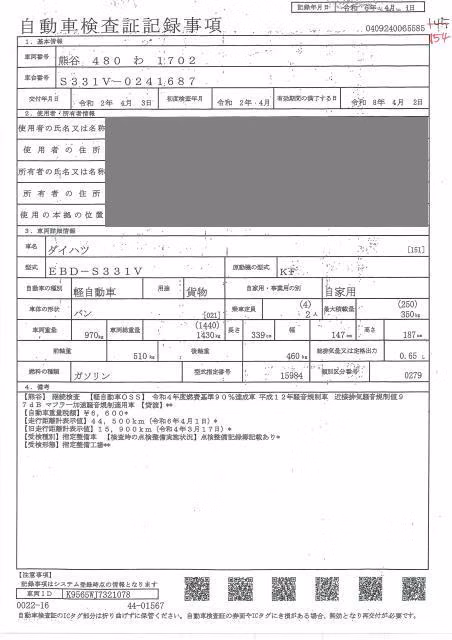 記録年月日 令和 6年 4月 1日
自動車検査証記録事項
0409240065585
1．基本情報
車両番号 熊谷 480 わ 1702
車台番号 S331V-0241687
交付年月日 令和 2年 4月 3日 初度検査年月 令和 2年 4月 有効期間の満了する日 令和 8年 4月 2日
2．使用者・所有者情報
使用者の氏名又は名称
使用者の住所
所有者の氏名又は名称
所有者の住所
使用の本拠の位置
3．車両詳細情報
車名 ダイハツ [151]
型式 EBD-S331V 原動機の型式 KF
自動車の種別 軽自動車 用途 貨物 自家用・事業用の別 自家用
車体の形状 バン [021] 乗車定員 (4) 2人 最大積載量 (250) 350kg
車両重量 970kg 車両総重量 (1440) 1430kg 長さ 339cm 幅 147cm 高さ 187cm
前軸重 510kg 後軸重 460kg 総排気量又は定格出力 0.65L
燃料の種類 ガソリン 型式指定番号 15984 類別区分番号 0279
4．備考
【熊谷】 継続検査 【軽自動車OSS】 令和4年度燃費基準90％達成車 平成12年騒音規制車 近接排気騒音規制値9
7dB マフラー加速騒音規制適用車 【貨渡】**
【自動車重量税額】¥6,600*
【走行距離計表示値】44,500km（令和6年4月1日）*
【旧走行距離計表示値】15,900km（令和4年3月17日）*
【受検種別】指定整備車 【検査時の点検整備実施状況】点検整備記録簿記載あり*
【受検形態】指定整備工場**
【注意事項】
記録事項はシステム登録時点の情報となります
車両ID K9565WJ7321078
0022-16 44-01567
自動車検査証のICタグ部分は折り曲げずに保管ください。自動車検査証の券面やICタグにき損がある場合、無効となり再交付が必要です。